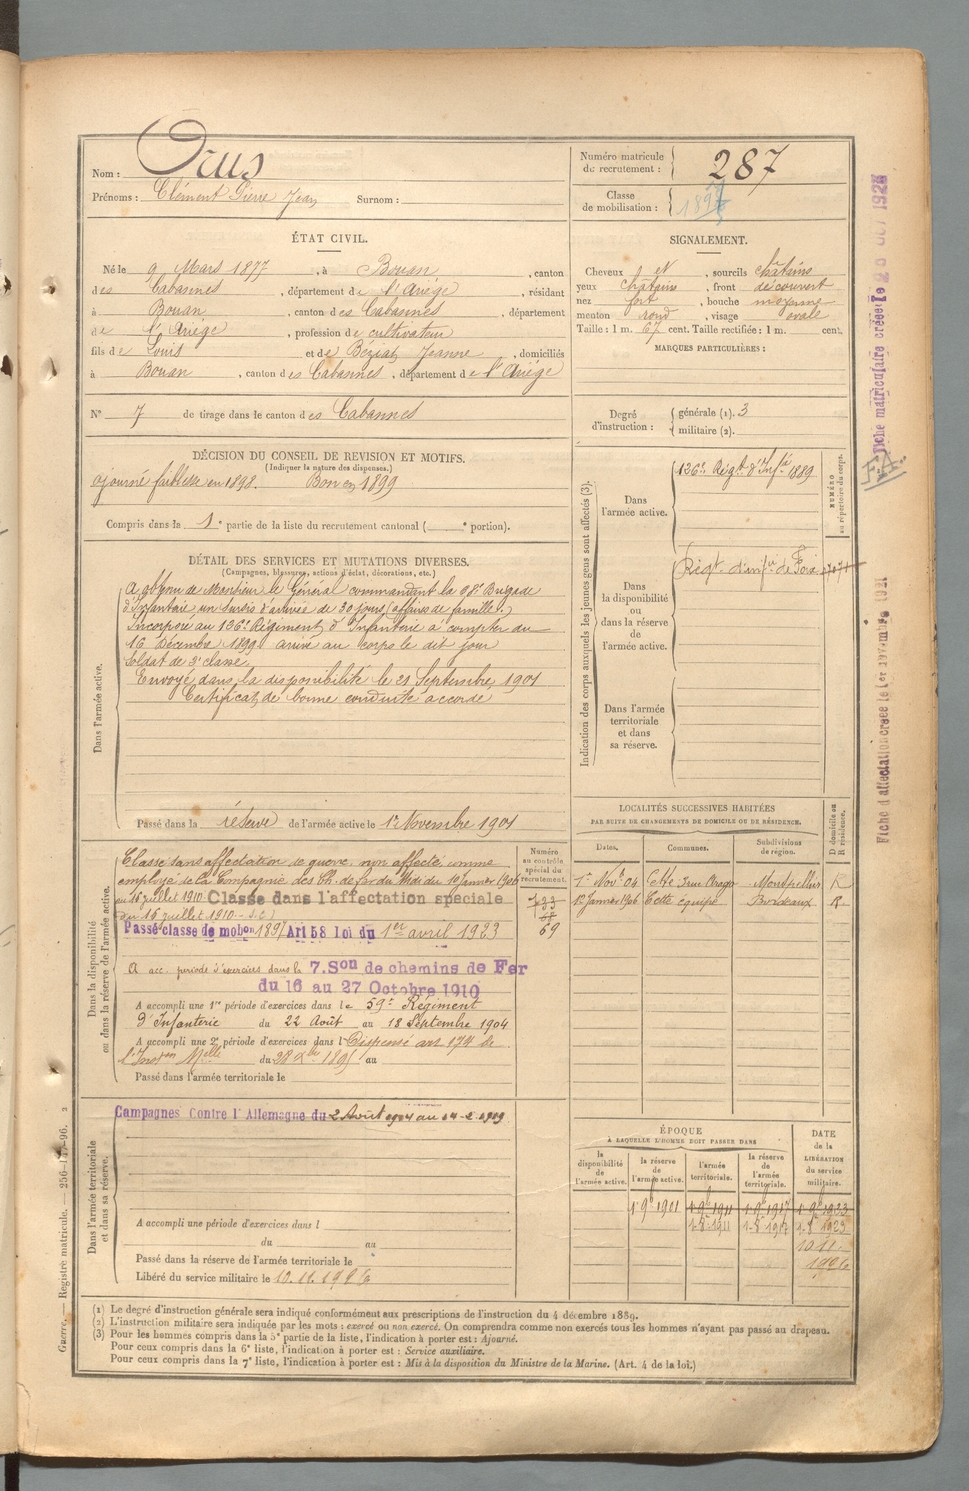 Nom : Orus
Prénoms : Clément Pierre Jean Surnom :
Numéro matricule du recrutement : 287
Classe de mobilisation : 1897
ÉTAT CIVIL.
Né le 9 Mars 1877, à Bouan, canton
des Cabannes, département de l'Ariège, résidant
à Bouan, canton des Cabannes, département
de l'Ariège, profession de cultivateur
fils de Louis et de Béziat Jeanne, domiciliés
à Bouan, canton des Cabannes, département de l'Ariège
N° 7 de tirage dans le canton des Cabannes
SIGNALEMENT.
Cheveux et, sourcils châtains
yeux châtains, front découvert
nez fort, bouche moyenne
menton rond, visage ovale
Taille : 1 m. 67 cent. Taille rectifiée : 1 m. cent.
MARQUES PARTICULIÈRES :
Degré d'instruction : générale (1). 3
militaire (2).
DÉCISION DU CONSEIL DE REVISION ET MOTIFS.
(Indiquer la nature des dispenses.)
ajourné faiblesse en 1898. Bon en 1899
Compris dans la 1e partie de la liste du recrutement cantonal ( e portion).
DÉTAIL DES SERVICES ET MUTATIONS DIVERSES.
(Campagnes, blessures, actions d'éclat, décorations, etc.)
Dans l'armée active.
A obtenu de Monsieur le Général commandant la 98e Brigade
d'Infanterie un sursis d'arrivée de 30 jours (affaires de famille.)
Incorporé au 126e Régiment d'Infanterie à compter du
16 Décembre 1899 arrivé au corps le dit jour
Soldat de 2e classe.
Envoyé dans la disponibilité le 21 Septembre 1901
Certificat de bonne conduite accordé
Passé dans la réserve de l'armée active le 1er Novembre 1901
Indication des corps auxquels les jeunes gens sont affectés (3).
NUMÉRO au répertoire du corps.
Dans l'armée active.
126e Régt d'Infie
Dans la disponibilité ou dans la réserve de l'armée active.
Régt d'infie de Foix
Dans l'armée territoriale et dans sa réserve.
Fiche matriculaire créée le
F.A.
Fiche d'affectation créée le 1er novembre 1921
Dans la disponibilité ou dans la réserve de l'armée active.
Numéro au contrôle spécial du recrutement.
Classé sans affectation de guerre, non affecté, comme
employé de la Compagnie des Ch. de fer du Midi du 10 Janvier 1906
au 15 juillet 1910 Classé dans l'affectation spéciale
du 15 juillet 1910
Passé classe de mobon 1897 Art 58 loi du 1er avril 1923
733
69
A acc. période d'exercices dans la 7.Son de chemins de Fer
du 16 au 27 Octobre 1910
A accompli une 1re période d'exercices dans le 59e Régiment
d'Infanterie du 22 Août au 18 Septembre 1904
A accompli une 2e période d'exercices dans l Dispensé art 174 de
l'Inston Melle du 28 Xbre 1895 au
Passé dans l'armée territoriale le
LOCALITÉS SUCCESSIVES HABITÉES
PAR SUITE DE CHANGEMENTS DE DOMICILE OU DE RÉSIDENCE.
Dates. Communes. Subdivisions de région. D domicile ou R résidence.
1er Novre 04 Cette 3 rue Arago Montpellier R
12 Janvier 1906 Cette équipe Bordeaux R
Dans l'armée territoriale et dans sa réserve.
Campagnes Contre l'Allemagne du 2 Août
A accompli une période d'exercices dans l
du au
Passé dans la réserve de l'armée territoriale le
Libéré du service militaire le 10.11.1926
ÉPOQUE
À LAQUELLE L'HOMME DOIT PASSER DANS
la disponibilité de l'armée active. la réserve de l'armée active. l'armée territoriale. la réserve de l'armée territoriale. DATE de la LIBÉRATION du service militaire.
1-9bre 1901 1-9bre 1911 1-9bre 1917 1-9bre 1923
1-8bre 1911 1-8bre 1917 1-8bre 1923
10.11.
1926
Guerre. — Registre matricule.
(1) Le degré d'instruction générale sera indiqué conformément aux prescriptions de l'instruction du 4 décembre 1889.
(2) L'instruction militaire sera indiquée par les mots : exercé ou non exercé. On comprendra comme non exercés tous les hommes n'ayant pas passé au drapeau.
(3) Pour les hommes compris dans la 5e partie de la liste, l'indication à porter est : Ajourné.
Pour ceux compris dans la 6e liste, l'indication à porter est : Service auxiliaire.
Pour ceux compris dans la 7e liste, l'indication à porter est : Mis à la disposition du Ministre de la Marine. (Art. 4 de la loi.)